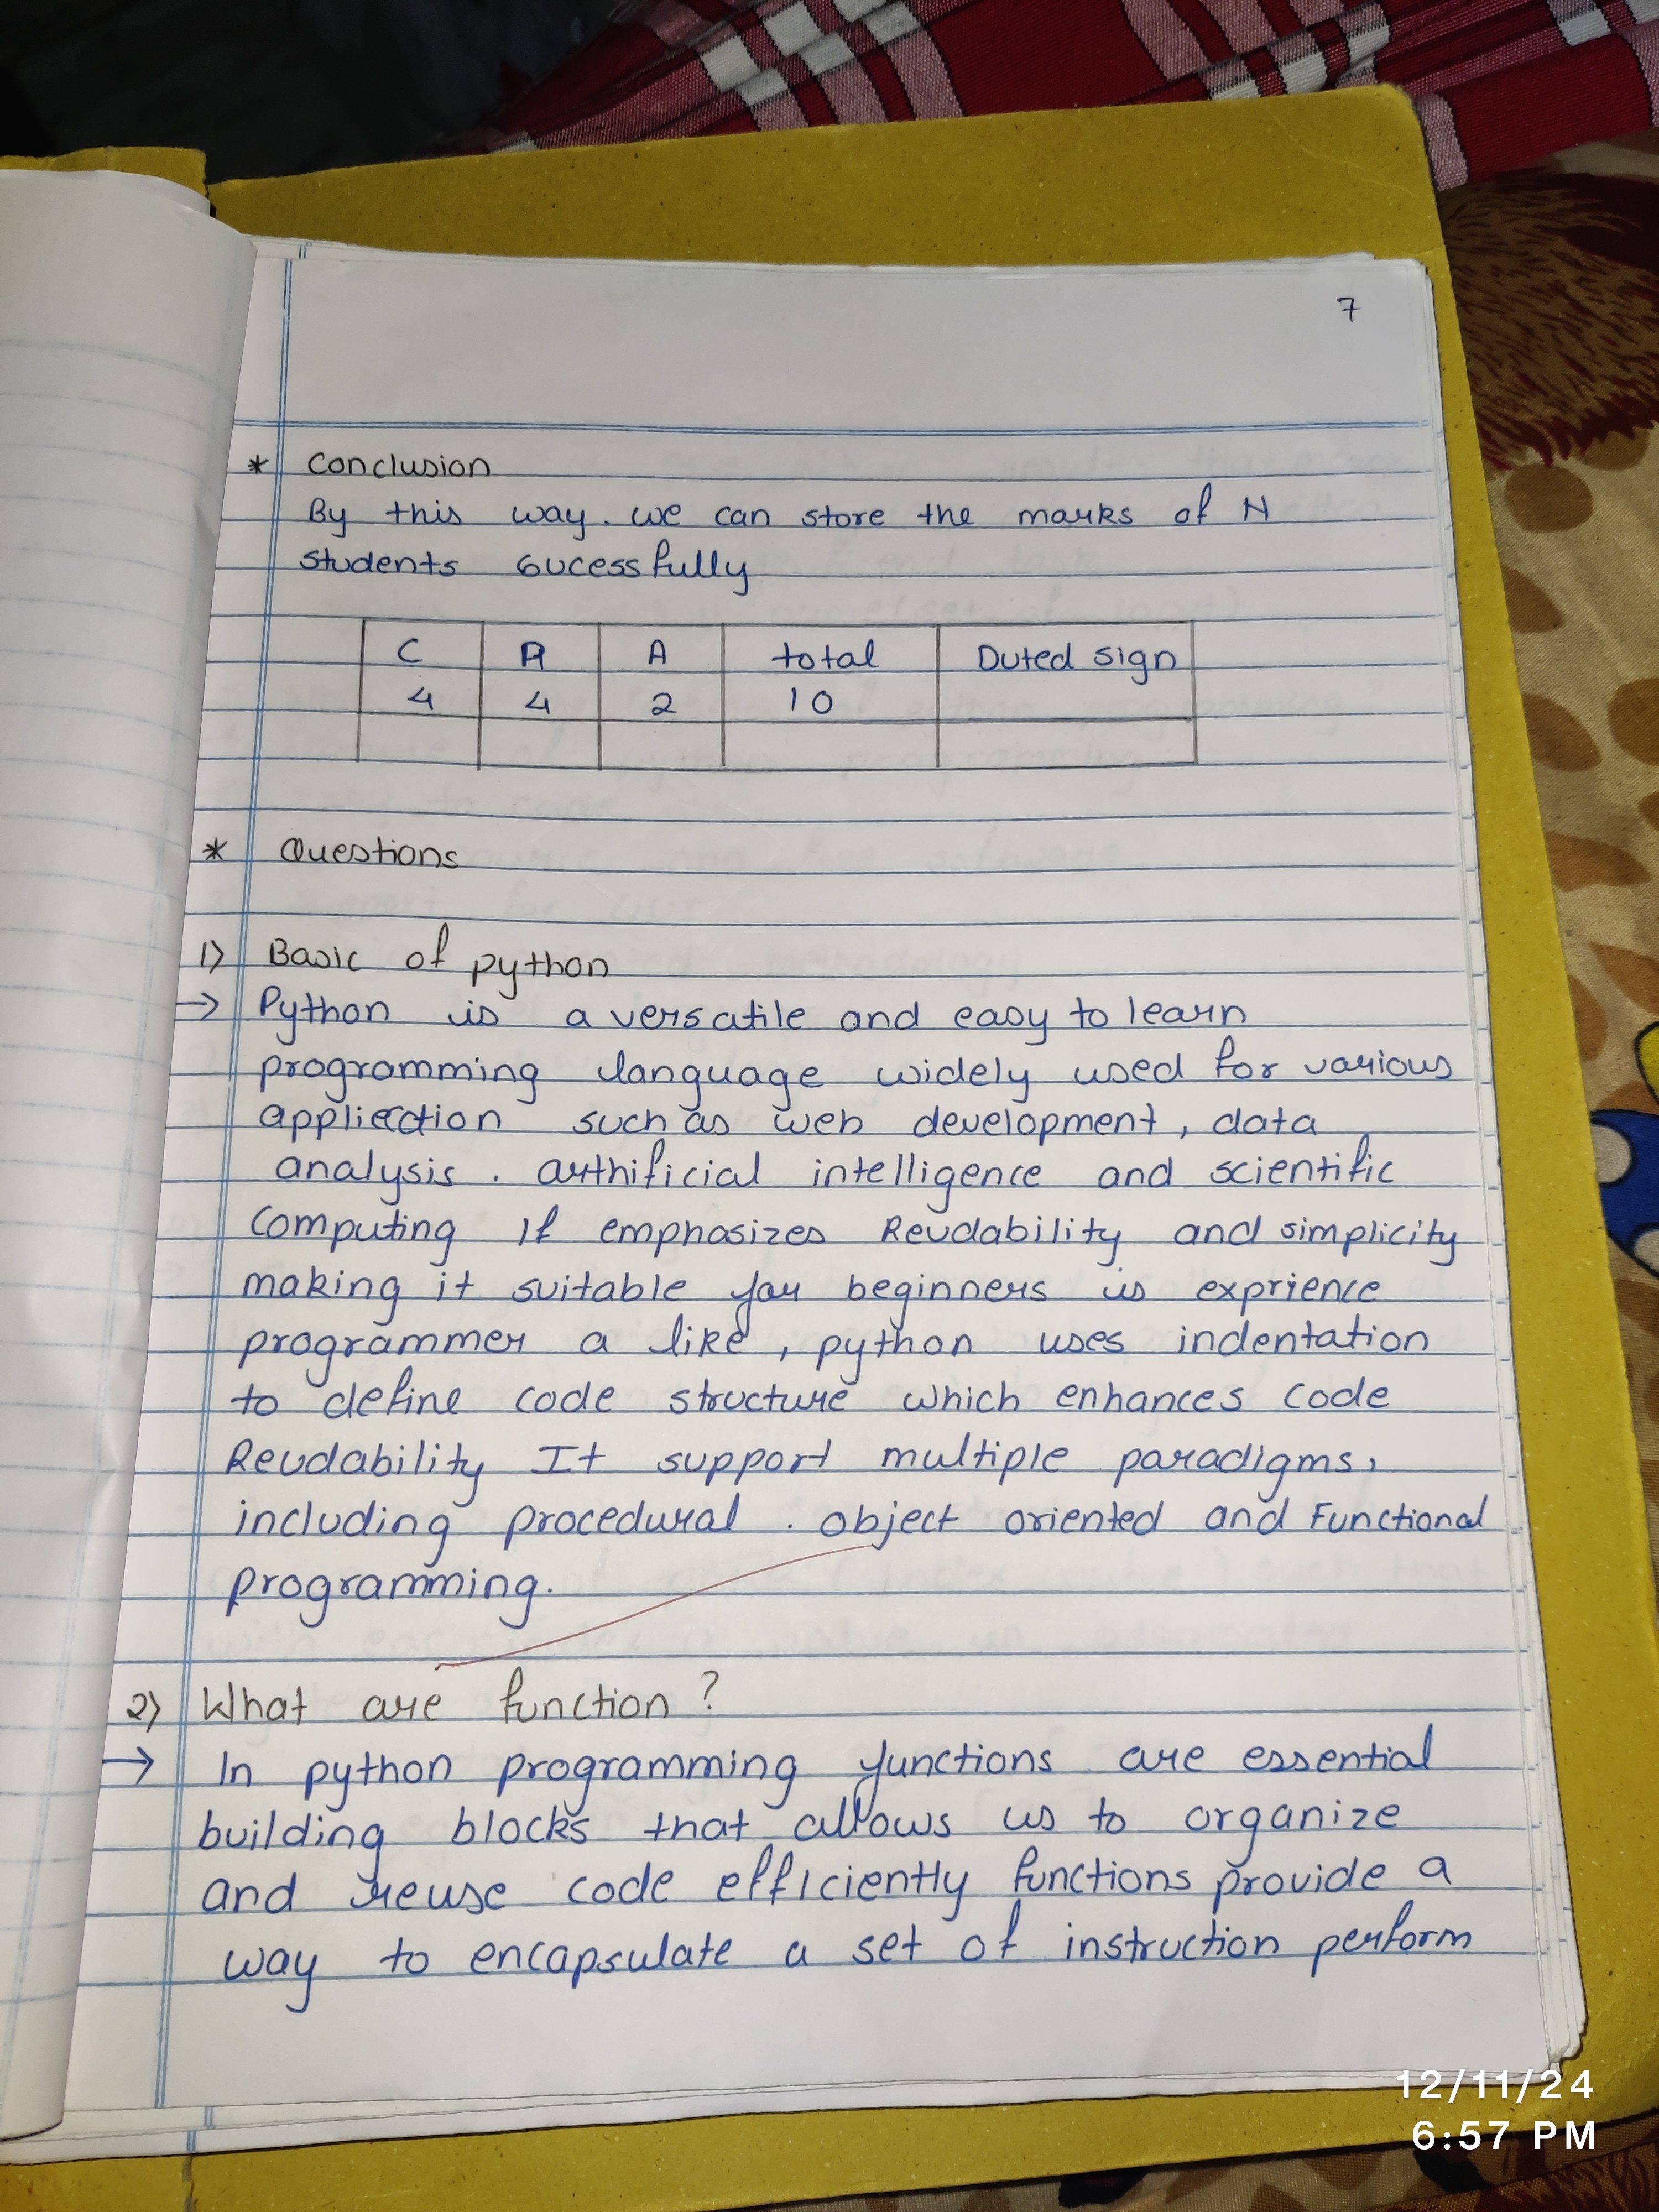 7
* Conclusion
By this way. we can store the marks of N
students sucessfully
C R A total Duted sign
4 4 2 10
* Questions
1) Basic of python
→ Python is a versatile and easy to learn
programming language widely used for various
application such as web development, data
analysis. arthificial intelligence and scientific
computing If emphasizes Reudability and simplicity
making it suitable for beginners is exprience
programmer a like, python uses indentation
to define code structure which enhances code
Reudability It support multiple paradigms,
including procedural. object oriented and Functional
programming.
2) What are function ?
→ In python programming functions are essential
building blocks that allows us to organize
and reuse code efficiently functions provide a
way to encapsulate a set of instruction perform
12/11/24
6:57 PM